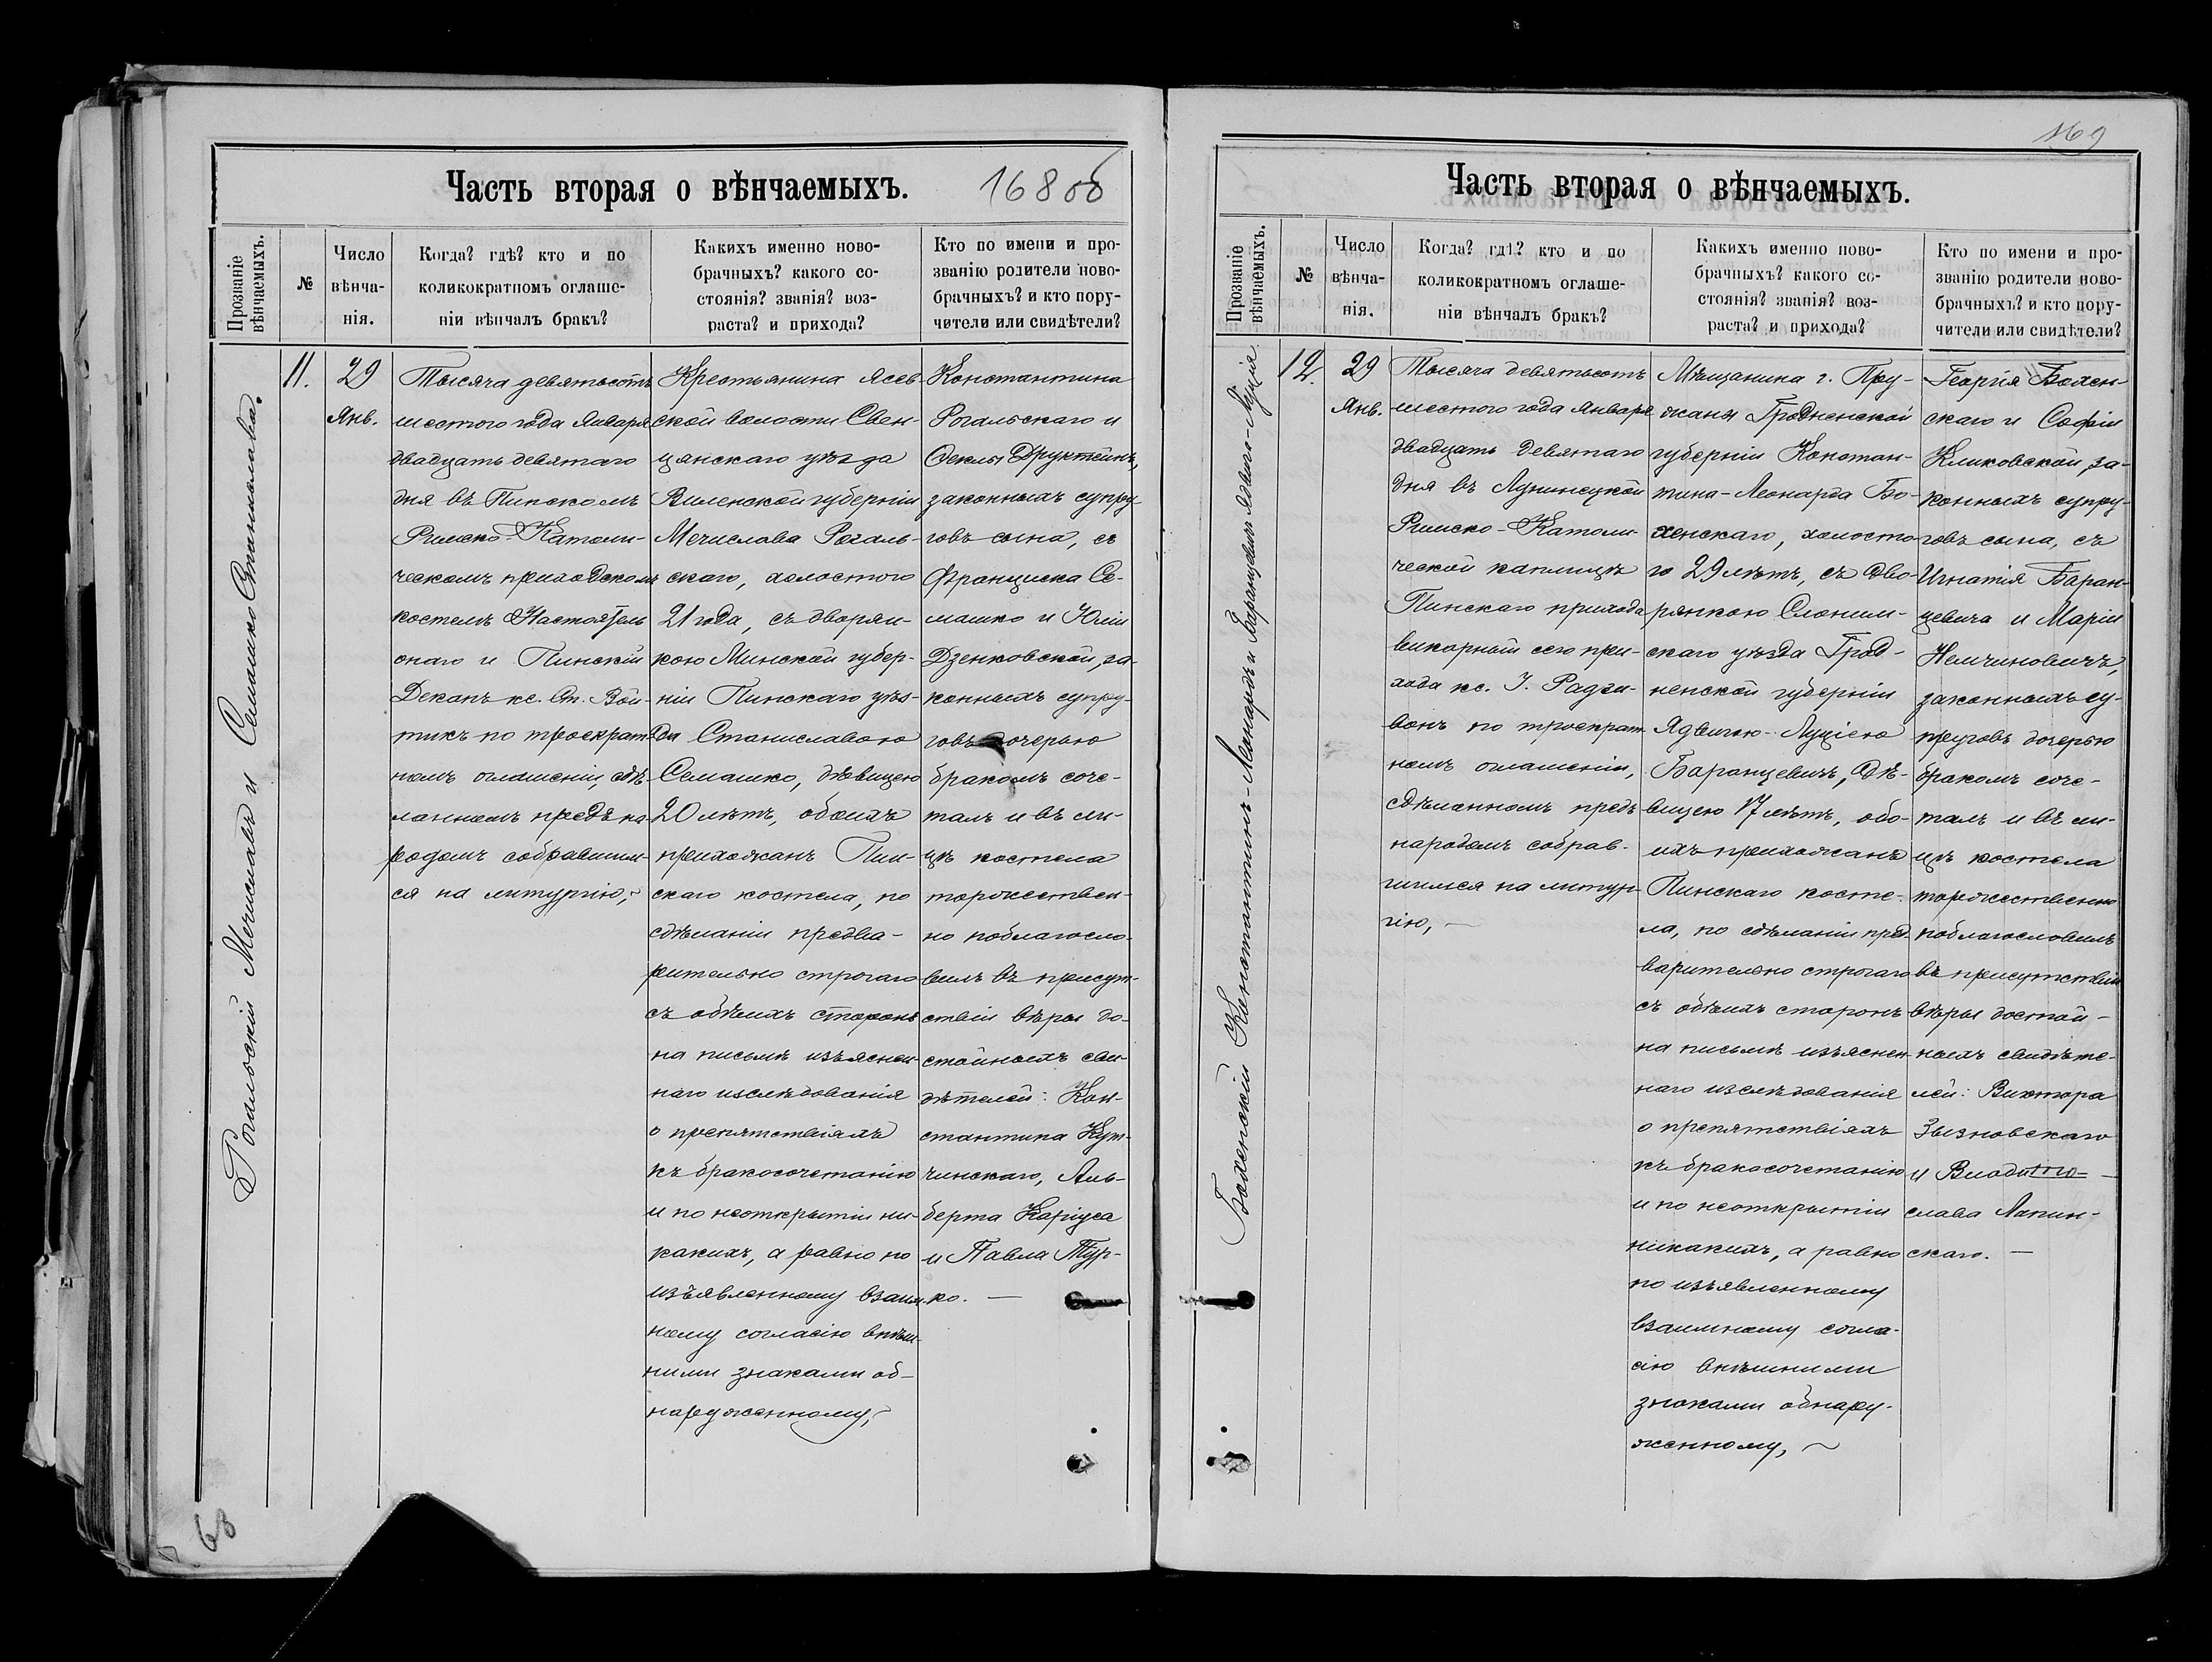 Часть вторая о вѣнчаемыхъ.
168 об
Прозваніе
вѣнчаемыхъ.
№
Число
вѣнча-
нія.
Когда? гдѣ? кто и по
коликократномъ оглаше-
ніи вѣнчалъ бракъ?
Какихъ именно ново-
брачныхъ? какого со-
стоянія? званія? воз-
раста? и прихода?
Кто по имени и про-
званію родители ново-
брачныхъ? и кто пору-
чители или свидѣтели?
Рогальскій Мечиславъ и Семашко Станислава.
11.
29
Янв.
Тысяча девятьсотъ
шестого года Января
двадцать девятаго
дня въ Пинскомъ
Римско-Католи-
ческомъ приходскомъ
костелѣ Настоятель
онаго и Пинскій
Деканъ кс. Вой-
тикъ по троекрат-
номъ оглашеніи, сдѣ-
ланномъ предъ на-
родомъ собравшим-
ся на литургію,
Крестьянина Ясев-
ской волости Свен-
цянскаго уѣзда
Виленской губерніи
Мечислава Рогаль-
скаго, холостого
21 года, съ дворян-
кою Минской губер-
ніи Пинскаго уѣз-
да Станиславою
Семашко, дѣвицею
20 лѣтъ, обоихъ
прихожанъ Пин-
скаго костела, по
сдѣланіи предва-
рительно строгаго
съ обѣихъ сторонъ
на письмѣ изъяснен-
наго изслѣдованія
о препятствіяхъ
къ бракосочетанію
и по неоткрытіи ни-
какихъ, а равно по
изъявленному взаим-
ному согласію внѣш-
ними знаками об-
наруженному,
Константина
Рогальскаго и
Феклы Друктейнъ,
законныхъ супру-
говъ сына, съ
Франциска Се-
машко и Юліи
Дзенковской, за-
конныхъ супру-
говъ дочерью
бракомъ соче-
талъ и въ ли-
цѣ костела
торжествен-
но поблагосло-
вилъ въ присут-
ствіи вѣры до-
стойныхъ сви-
дѣтелей: Кон-
стантина Кут-
чинскаго, Аль-
берта Каріуса
и Павла Тур-
ко. —
68
169
Часть вторая о вѣнчаемыхъ.
Прозваніе
вѣнчаемыхъ.
№
Число
вѣнча-
нія.
Когда? гдѣ? кто и по
коликократномъ оглаше-
ніи вѣнчалъ бракъ?
Какихъ именно ново-
брачныхъ? какого со-
стоянія? званія? воз-
раста? и прихода?
Кто по имени и про-
званію родители ново-
брачныхъ? и кто пору-
чители или свидѣтели?
Бохенскій Константинъ-Леонардъ и Баранцевичъ Ядвига-Луція.
12.
29
Янв.
Тысяча девятьсотъ
шестого года Января
двадцать девятаго
дня въ Лунинецкой
Римско-Католи-
ческой каплицѣ
Пинскаго прихода
викарный сего при-
хода кс. І. Радзи-
вонъ по троекрат-
номъ оглашеніи,
сдѣланномъ предъ
народомъ собрав-
шимся на литур-
гію, —
Мѣщанина г. Пру-
жаны Гродненской
губерніи Констан-
тина-Леонарда Бо-
хенскаго, холосто-
го 29 лѣтъ, съ дво-
рянкою Слоним-
скаго уѣзда Грод-
ненской губерніи
Ядвигою-Луціею
Баранцевичъ, дѣ-
вицею 17 лѣтъ, обо-
ихъ прихожанъ
Пинскаго косте-
ла, по сдѣланіи пред-
варительно строгаго
съ обѣихъ сторонъ
на письмѣ изъяснен-
наго изслѣдованія
о препятствіяхъ
къ бракосочетанію
и по неоткрытіи
никакихъ, а равно
по изъявленному
взаимному согла-
сію внѣшними
знаками обнару-
женному,
Георгія Бохен-
скаго и Софіи
Кликовской, за-
конныхъ супру-
говъ сына, съ
Игнатія Баран-
цевича и Маріи
Немчиновичъ,
законныхъ су-
пруговъ дочерью
бракомъ соче-
талъ и въ ли-
цѣ костела
торжественно
поблагословилъ
въ присутствіи
вѣры достой-
ныхъ свидѣте-
лей: Виктора
Зызновскаго
и Влади
слава Лапин-
скаго. —